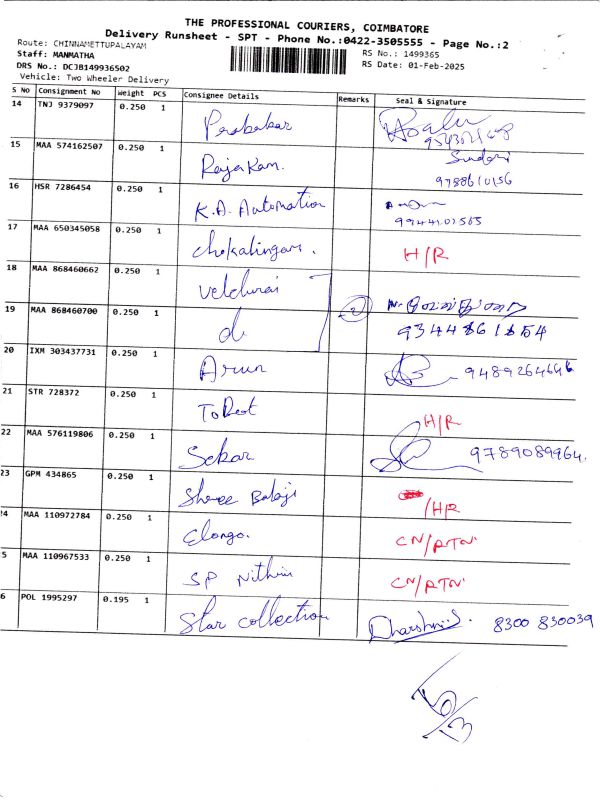 THE PROFESSIONAL COURIERS, COIMBATORE
Delivery Runsheet - SPT - Phone No.:0422-3505555 - Page No.:2
Route: CHINNAMETTUPALAYAM
Staff: MANMATHA
DRS No.: DCJB149936502
Vehicle: Two Wheeler Delivery
RS No.: 1499365
RS Date: 01-Feb-2025
S No Consignment No Weight PCS Consignee Details Remarks Seal & Signature
14 TNJ 9379097 0.250 1 Prabakar
15 MAA 574162507 0.250 1 Rajakam. Sundari
9788610156
16 HSR 7286454 0.250 1 K.A. Automation
9944101565
17 MAA 650345058 0.250 1 Chokalingam. H/R
18 MAA 868460662 0.250 1 Velchurai
19 MAA 868460700 0.250 1 do 2
9344861654
20 IXM 303437731 0.250 1 Arun 9489264646
21 STR 728372 0.250 1 H/R
22 MAA 576119806 0.250 1 Sekar 9789089964.
23 GPM 434865 0.250 1 Shree Balaji /HR
24 MAA 110972784 0.250 1 Elango. CN/RTN
5 MAA 110967533 0.250 1 SP Nithin CN/RTN
6 POL 1995297 0.195 1 Star collection Dharshni.S. 8300 830039